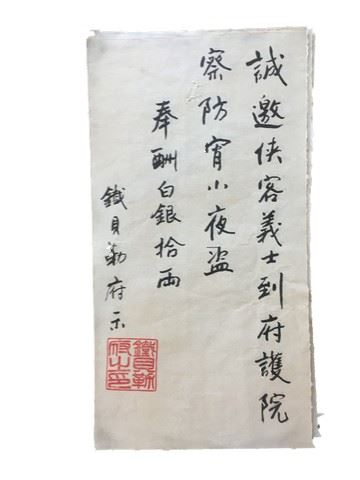 誠邀侠客義士到府護院
察防宵小夜盗
奉酬白銀拾兩
鐵貝勒府示
鐵貝勒
府之印